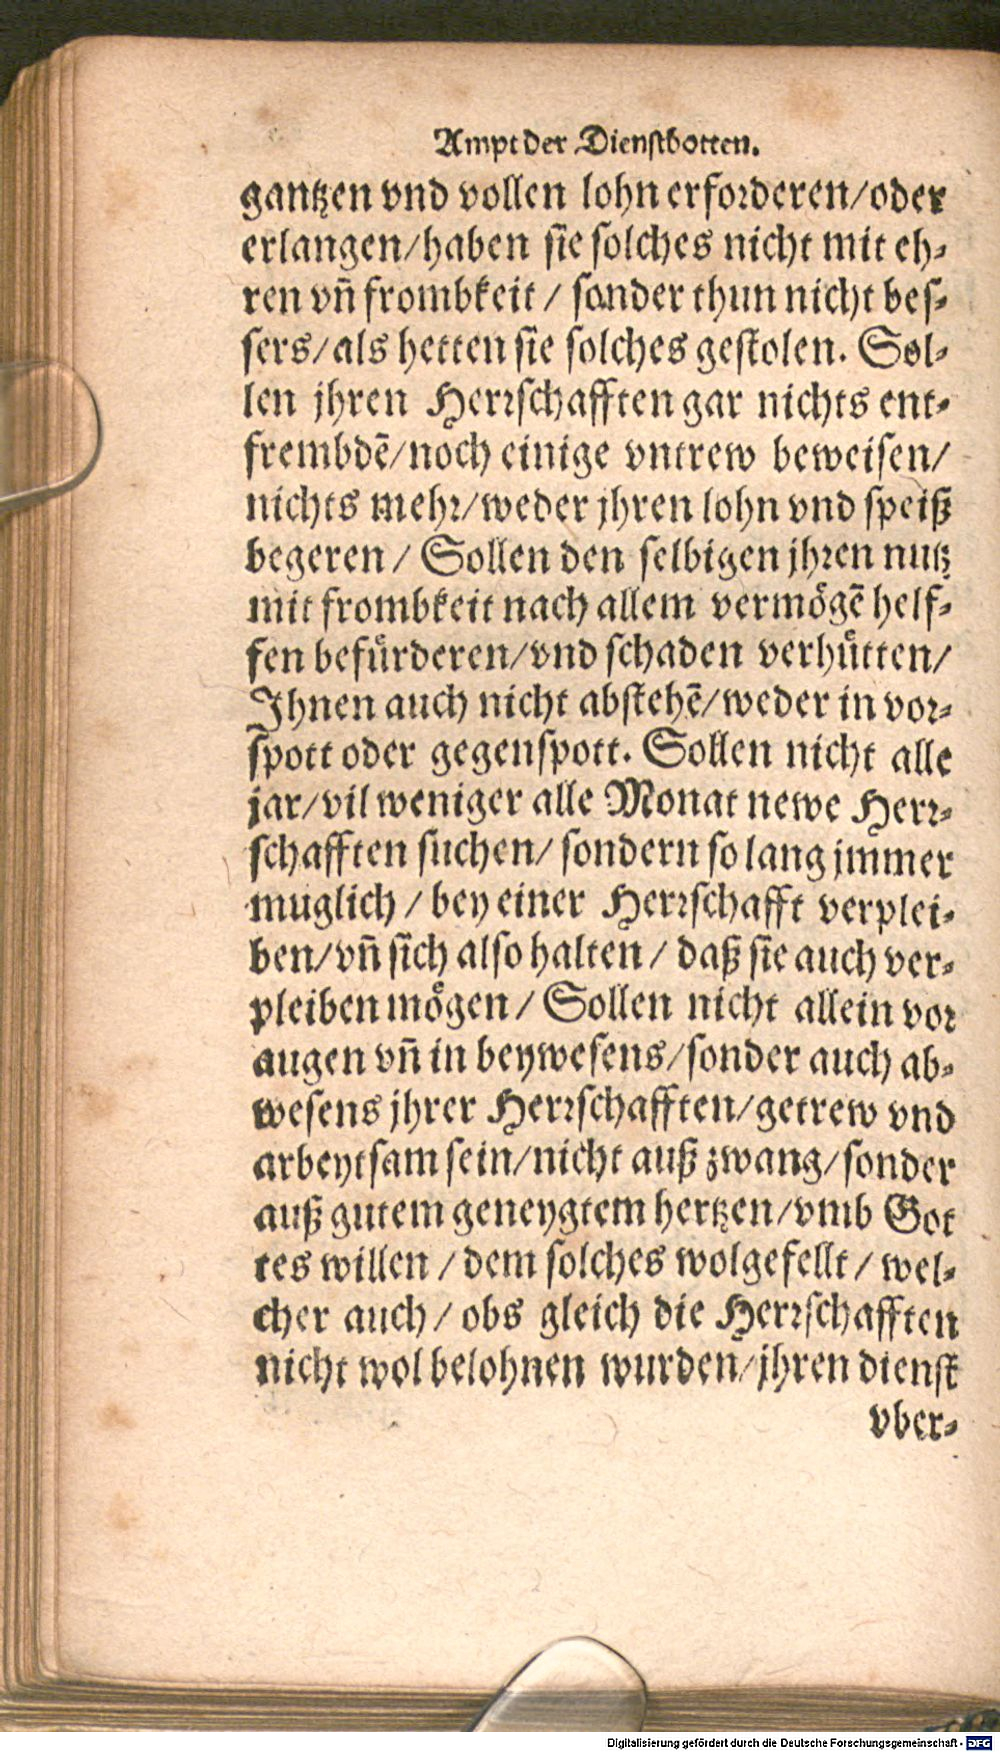 Ampt der Dienstbotten.
gantzen vnd vollen lohn erforderen/oder
erlangen/haben sie solches nicht mit eh-
ren vñ frombkeit / sonder thun nicht bes-
sers/als hetten sie solches gestolen. Sol-
len jhren Herrschafften gar nichts ent-
frembdē/noch einige vntrew beweisen/
nichts mehr/weder jhren lohn vnd speiß
begeren / Sollen den selbigen jhren nutz
mit frombkeit nach allem vermögē helf-
fen befürderen/vnd schaden verhütten/
Ihnen auch nicht abstehē/weder in vor-
spott oder gegenspott. Sollen nicht alle
jar/vil weniger alle Monat newe Herr-
schafften suchen/ sondern so lang jmmer
muglich / bey einer Herrschafft verplei-
ben/vñ sich also halten / daß sie auch ver-
pleiben mögen / Sollen nicht allein vor
augen vñ in beywesens/sonder auch ab-
wesens jhrer Herrschafften/getrew vnd
arbeytsam sein/nicht auß zwang/sonder
auß gutem geneygtem hertzen/vmb Got
tes willen / dem solches wolgefellt / wel-
cher auch / obs gleich die Herrschafften
nicht wol belohnen wurden/jhren dienst
vber-
Digitalisierung gefördert durch die Deutsche Forschungsgemeinschaft - DFG